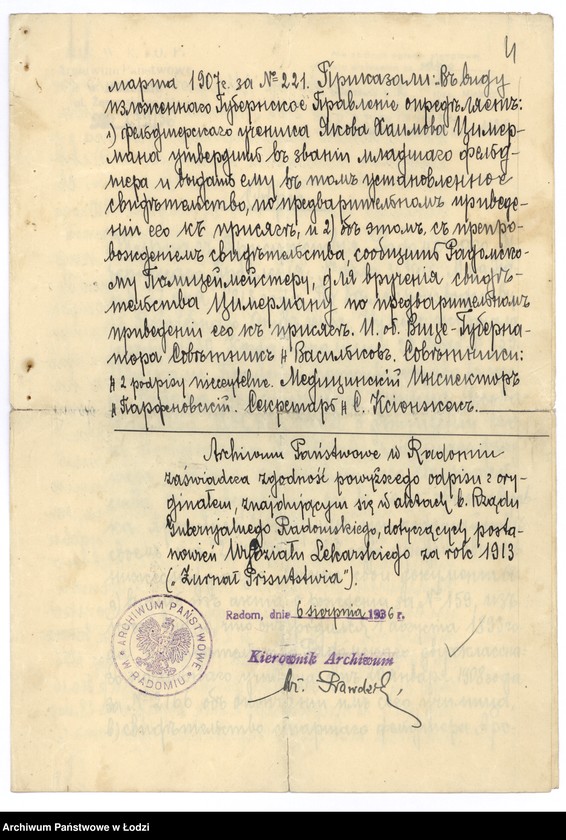 4
марта 1907г. за № 221. Приказали: въ виду
изложеннаго Губернское Правленіе опредѣляетъ:
1) фельдшерского ученика Якова Хаимова Цимер-
мана утвердить въ званіи младшаго фельд-
шера и выдать ему въ томъ установленное
свидѣтельство, по предварительномъ приведе-
ніи его къ присягѣ, и 2) объ этомъ, съ препро-
вожденіемъ свидѣтельства, сообщить Радомско-
му Полицеймейстеру, для врученія свидѣ-
тельства Цимерману по предварительномъ
приведеніи его къ присягѣ. И. об. Вице-Губерна-
тора Совѣтникъ /-/ Васильковъ. Совѣтники:
/-/ 2 podpisy nieczytelne. Медицинскій Инспекторъ
/-/ Парфеновскій. Секретарь /-/ С. Ксіонжекъ.
Archiwum Państwowe w Radomiu
zaświadcza zgodność powyższego odpisu z ory-
ginałem, znajdującym się w aktach b. Rządu
Gubernjalnego Radomskiego, dotyczących posta-
nowień Wydziału Lekarskiego za rok 1913
("Żurnał Prisutstwia").
Radom, dnia 6 sierpnia 1936 r.
ARCHIWUM PAŃSTWOWE W RADOMIU
Kierownik Archiwum
Archiwum Państwowe w Łodzi